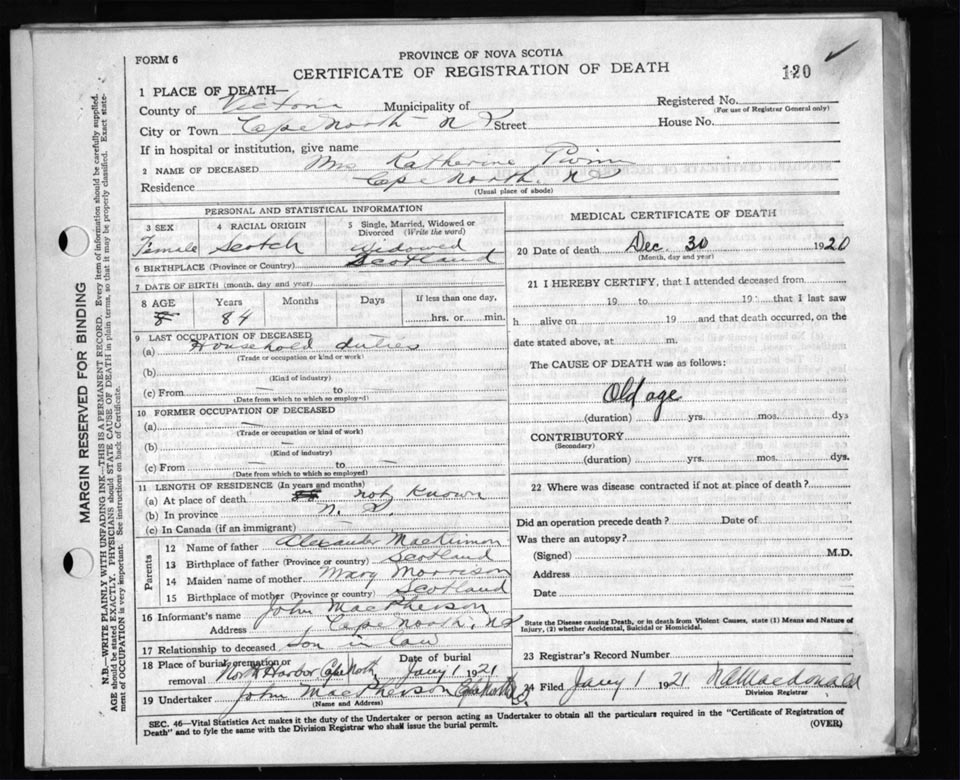 FORM 6
PROVINCE OF NOVA SCOTIA
CERTIFICATE OF REGISTRATION OF DEATH
120
1 PLACE OF DEATH—
County of Victoria Municipality of
Registered No.
(For use of Registrar General only)
City or Town Cape North N S Street
House No.
If in hospital or institution, give name
2 NAME OF DECEASED Mrs Katherine
Residence Cape North. N S
(Usual place of abode)
PERSONAL AND STATISTICAL INFORMATION
3 SEX
Female
4 RACIAL ORIGIN
Scotch
5 Single, Married, Widowed or Divorced (Write the word)
Widowed
6 BIRTHPLACE (Province or Country) Scotland
7 DATE OF BIRTH (month, day and year)
8 AGE Years Months Days If less than one day,
84 hrs. or min.
9 LAST OCCUPATION OF DECEASED
(a) Household duties
(Trade or occupation or kind or work)
(b)
(Kind of industry)
(c) From — to —
(Date from which to which so employed)
10 FORMER OCCUPATION OF DECEASED
(a) —
(Trade or occupation or kind of work)
(b) —
(Kind of industry)
(c) From — to —
(Date from which to which so employed)
11 LENGTH OF RESIDENCE (In years and months)
(a) At place of death not known
(b) In province N. S.
(c) In Canada (if an immigrant) —
Parents
12 Name of father Alexander MacKinnon
13 Birthplace of father (Province or country) Scotland
14 Maiden name of mother Mary Morrison
15 Birthplace of mother (Province or country) Scotland
16 Informant's name John MacPherson
Address Cape North, N S
17 Relationship to deceased Son in law
18 Place of burial, cremation or removal North Harbor Cape North Date of burial Jany 1 1921
19 Undertaker John MacPherson Cape North
(Name and Address)
MEDICAL CERTIFICATE OF DEATH
20 Date of death Dec. 30 1920
(Month, day and year)
21 I HEREBY CERTIFY, that I attended deceased from
19 to 19 that I last saw
h alive on 19 and that death occurred, on the
date stated above, at m.
The CAUSE OF DEATH was as follows:
Old age
(duration) yrs. mos. dys
CONTRIBUTORY
(Secondary)
(duration) yrs. mos. dys.
22 Where was disease contracted if not at place of death?
Did an operation precede death? Date of
Was there an autopsy?
(Signed) M.D.
Address
Date
State the Disease causing Death, or in death from Violent Causes, state (1) Means and Nature of
Injury, (2) whether Accidental, Suicidal or Homicidal.
23 Registrar's Record Number
24 Filed Jany 1 1921 Macdonald
Division Registrar
SEC. 46—Vital Statistics Act makes it the duty of the Undertaker or person acting as Undertaker to obtain all the particulars required in the "Certificate of Registration of
Death" and to fyle the same with the Division Registrar who shall issue the burial permit.
(OVER)
MARGIN RESERVED FOR BINDING
N.B.—WRITE PLAINLY WITH UNFADING INK—THIS IS A PERMANENT RECORD. Every item of information should be carefully supplied.
AGE should be stated EXACTLY. PHYSICIANS should STATE CAUSE OF DEATH in plain terms, so that it may be properly classified. Exact state-
ment of OCCUPATION is very important. See instructions on back of Certificate.